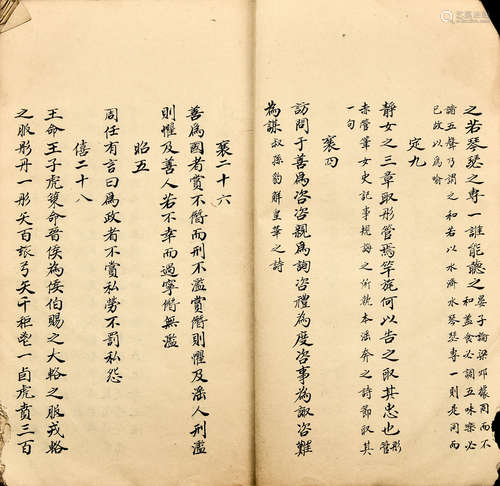 之若琴瑟之專一誰能聽之晏子論梁邱據同而不
和蓋食必調五味樂必
諧五聲乃謂之和若以水濟水琴瑟專一則是同而
已故以為喻
定九
靜女之三章取彤管焉竿旄何以告之取其忠也彤管
赤管筆女史記事規誨之所執本滛奔之詩節取其
一句
襄四
訪問于善為咨咨親為詢咨禮為度咨事為諏咨難
為謀叔孫豹解皇華之詩
襄二十六
善為國者賞不僭而刑不濫賞僭則懼及滛人刑濫
則懼及善人若不幸而過寧僭無濫
昭五
周任有言曰為政者不賞私勞不罰私怨
僖二十八
王命王子虎策命晉侯為侯伯賜之大輅之服戎輅
之服彤弓一彤矢百玈弓矢千秬鬯一卣虎賁三百